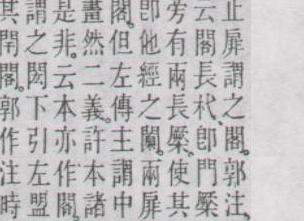 止扉謂之閣。郭注、
云閣長杙、卽門橜
旁有兩長橜。使其
卽他經之闑。兩扉
閣。但左傳主謂中
畫然二義。許本諸
是非。云本亦作閣。
謂之閎下引左盟
其閈閣。郭作注時